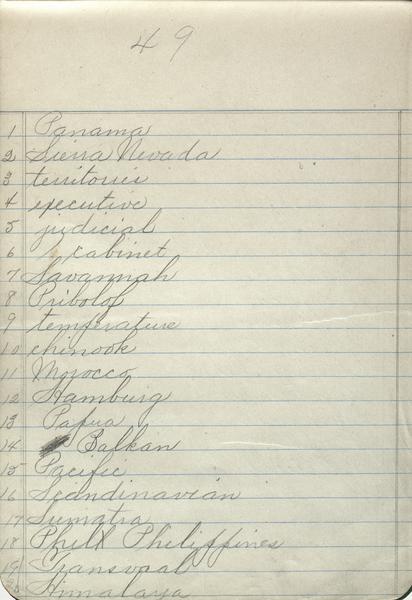 49
1 Panama
2 Sierra Nevada
3 territories
4 executive
5 judicial
6 cabinet
7 Savannah
8 Pribolof
9 temperature
10 chinook
11 Morocco
12 Hamburg
13 Papua
14 Balkan
15 Pacific
16 Scandinavian
17 Sumatra
18 Philippines
19 Transvaal
20 Himalaya